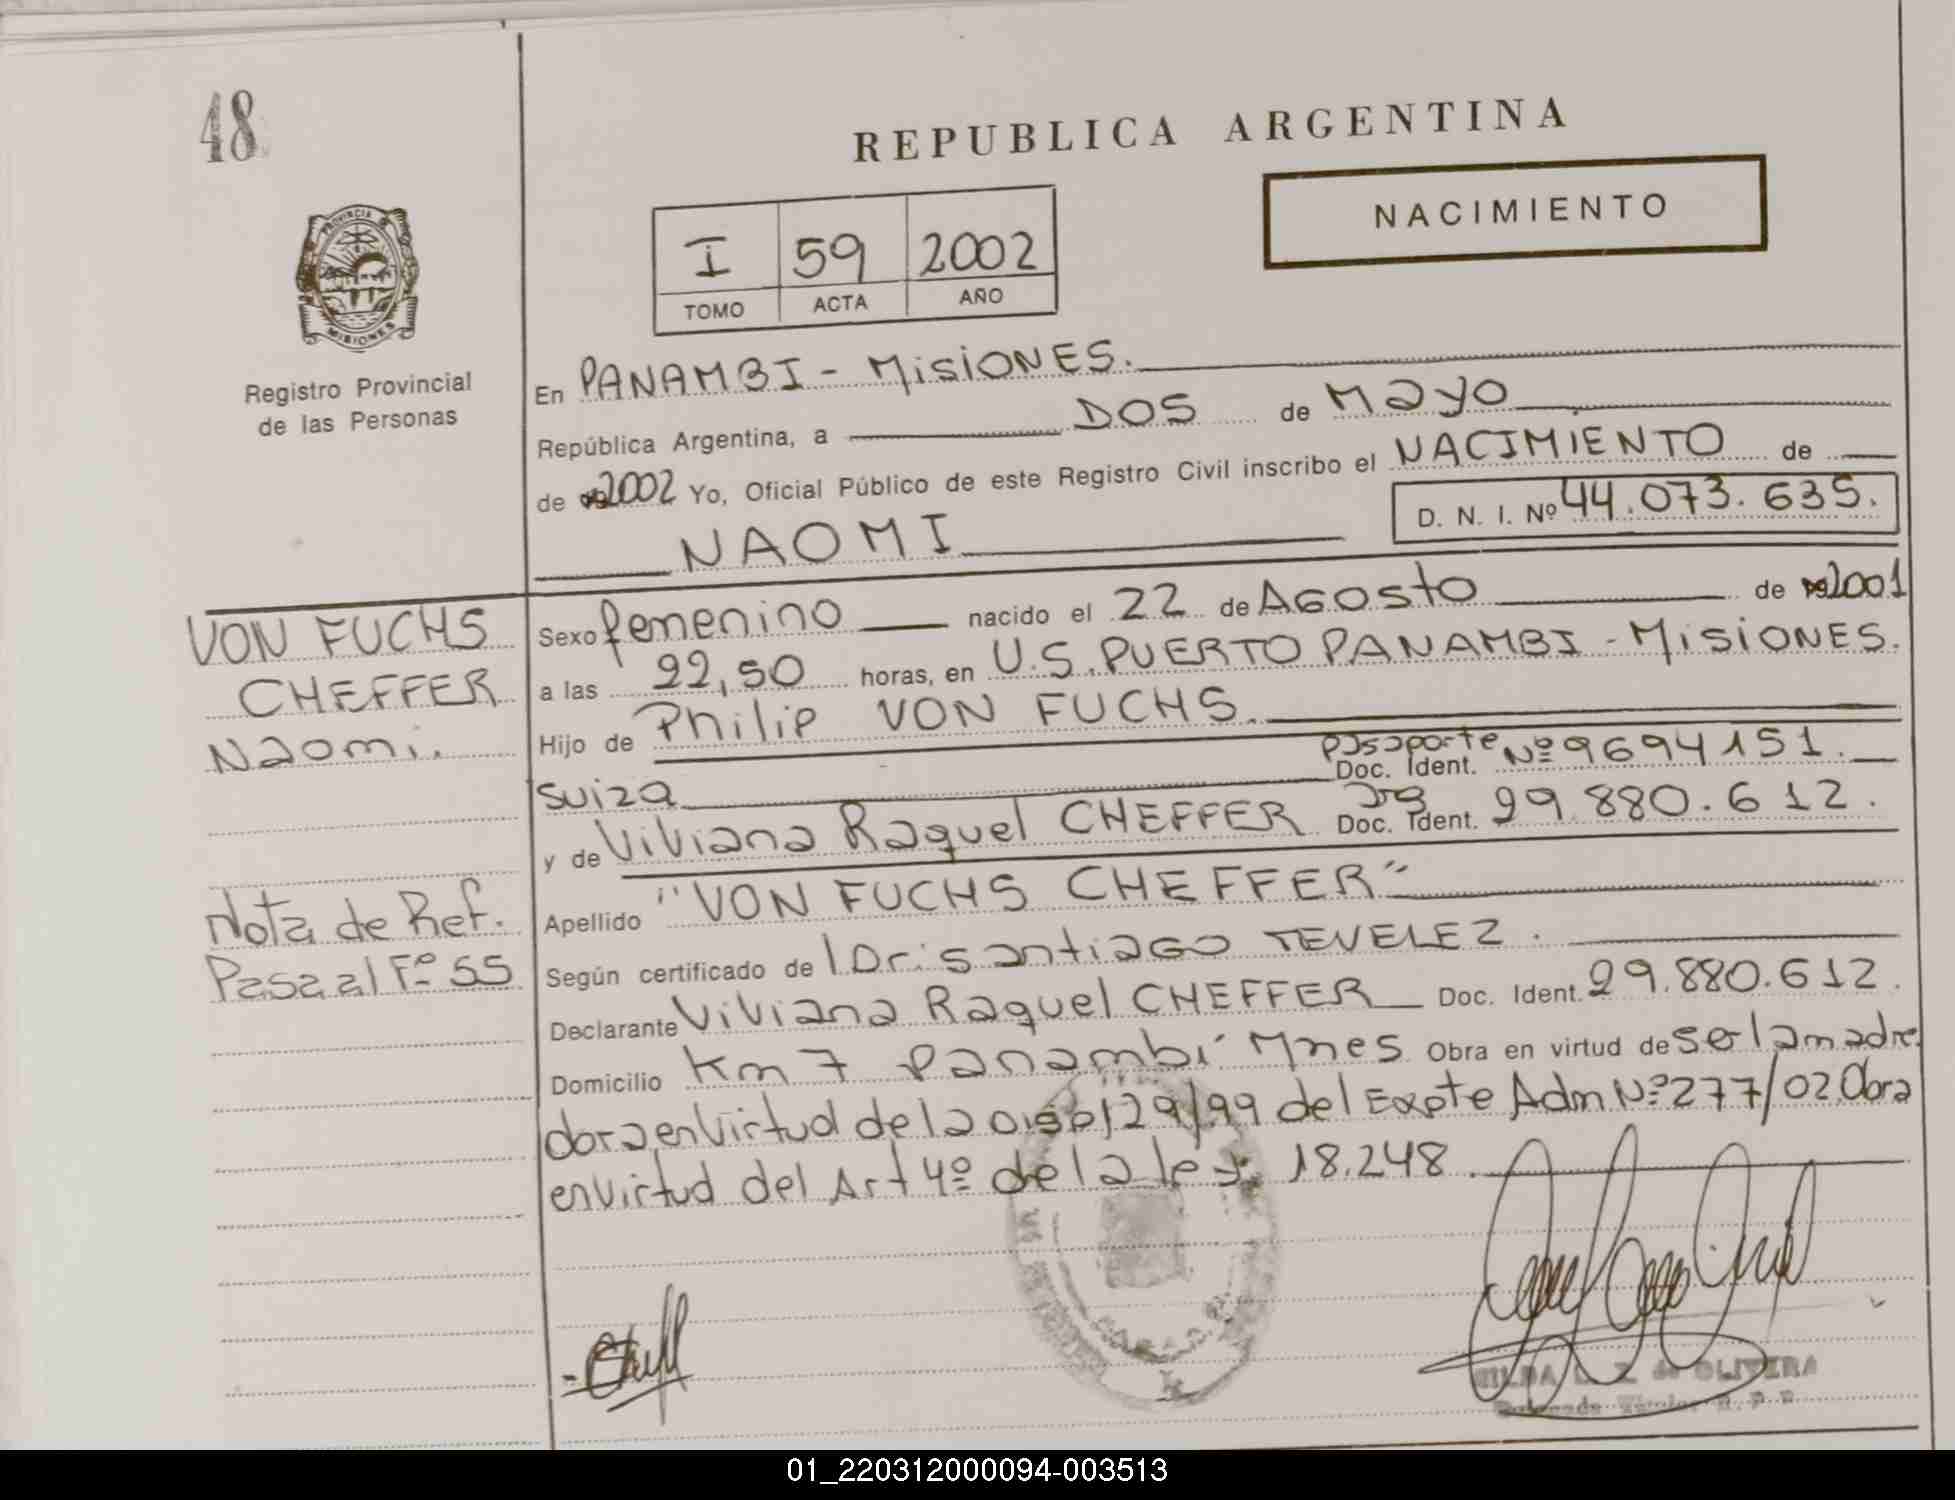 48
REPUBLICA ARGENTINA
NACIMIENTO
I 59 2002
TOMO ACTA AÑO
PROVINCIA DE
MISIONES
Registro Provincial
de las Personas
En PANAMBI - MISIONES.
República Argentina, a DOS de Mayo
de 2002 Yo, Oficial Público de este Registro Civil inscribo el NACIMIENTO de
D. N. I. Nº 44.073.635.
NAOMI
VON FUCHS
CHEFFER
Naomi.
Nota de Ref.
Pasa al Fº 55
Sexo femenino nacido el 22 de AGOSTO de 2001
a las 22,50 horas, en U.S. PUERTO PANAMBI - MISIONES.
Hijo de Philip VON FUCHS.
Suiza Pasaporte Doc. Ident. Nº 9694151.
y de Viviana Raquel CHEFFER Arg Doc. Ident. 29.880.612.
Apellido "VON FUCHS CHEFFER"
Según certificado de 1 Dr. Santiago TEVELEZ.
Declarante Viviana Raquel CHEFFER Doc. Ident. 29.880.612.
Domicilio Km 7 Panambí Mnes Obra en virtud de ser la madre.
dora en virtud de la Disp 129/99 del Expte Adm Nº 277/02 Obra
en virtud del Art 4º de la ley 18.248.
de OLIVERA
01_220312000094-003513